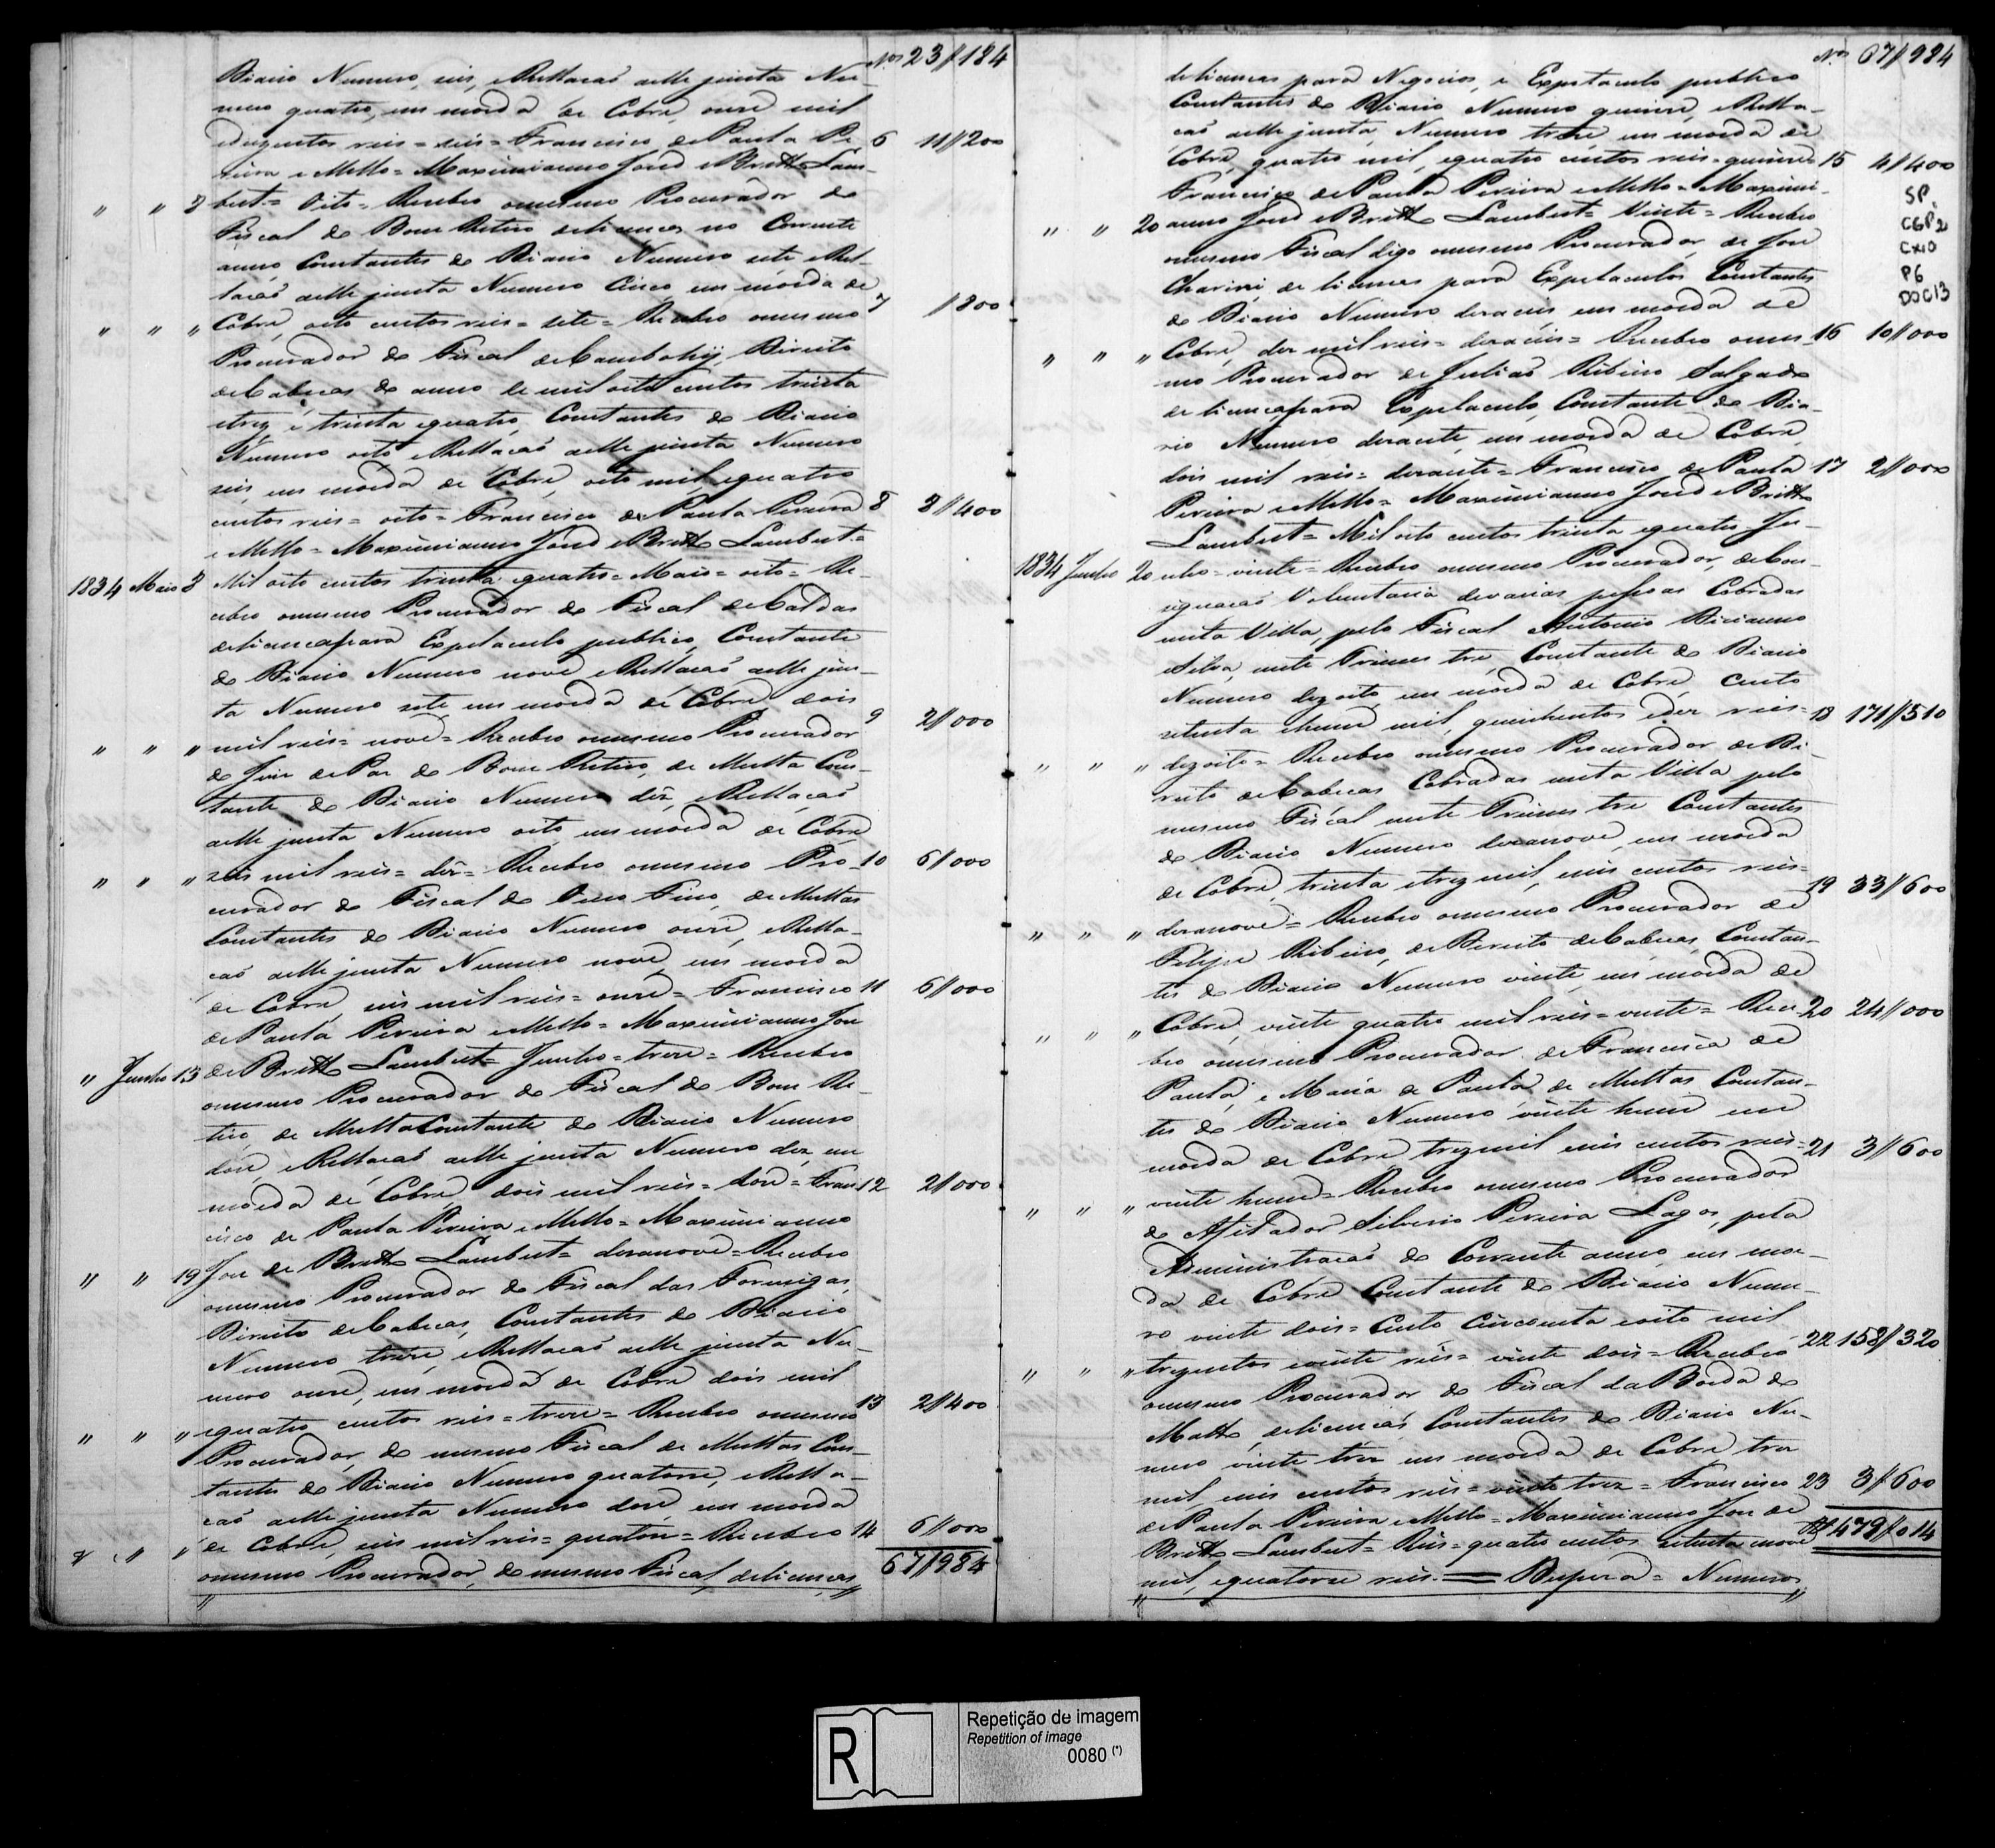 Nos 23//184
Diario Numero, seis, eRellacaõ aelle junta Nu-
mero quatro, em moeda de Cobre, onze mil
eduzentos reis = seis = Francisco de Paula Pe- 6 11//200
reira eMello = Maximianno José eBritto Lam-
" " 8 bert = Oito = Recebeo omesmo Procurador do
Fiscal do Bom Retiro delicenças no Corrente
anno, Constantes do Diario Numero sete eRel-
lacaõ aelle junta Numero Cinco em moeda de
" " " Cobre, oito centos reis = sete = Recebeo omesmo 7 //800
Procurador do Fiscal deCambohÿ, Direito
deCabecas do anno de mil oito centos trinta
etrez, e trinta equatro, Constantes do Diario
Numero oito eRellacaõ aelle junta Numero
seis em moeda de Cobre, oito mil, equatro
centos reis = oito = Francisco de Paula Pereira 8 8//400
eMello = Maximianno José eBritto Lambert =
1834 Maio 8 Mil oito centos trinta equatro = Maio = oito = Re-
cebeo omesmo Procurador do Fiscal deCaldas
delicencapara Expetaculo publico, Constante
do Diario Numero nove eRellacaõ aelle jun-
ta Numero sete em moeda de Cobre dois
" " " mil reis = nove = Recebeo omesmo Procurador 9 2//000
do Juiz de Paz do Bom Retiro, de Multa Cons-
tante do Diario Numero déz, eRellaçaõ
aelle junta Numero oito, em moeda de Cobre
" " " seis mil reis = déz = Recebeo omesmo Pro- 10 6//000
curador do Fiscal do Ouro Fino, de Multas
Constantes do Diario Numero onze, eRella-
caõ aelle junta Numero nove, em moeda
de Cobre, seis mil reis = onze = Francisco 11 6//000
de Paula Pereira eMello = Maximianno José
" Junho 13 de Britto Lambert = Junho = treze = Recebeo
omesmo Procurador do Fiscal do Bom Re-
tiro, de MultaConstante do Diario Numero
doze, eRellacaõ aelle junta Numero dez em
moeda de Cobre dois mil reis = doze = Fran 12 2//000
cisco de Paula Pereira eMello = Maximianno
" " 19 José de Britto Lambert = dezanove = Recebeo
omesmo Procurador do Fiscal das Formigas,
Direito deCabecas, Constantes do Diario
Numero treze, eRellacaõ aelle junta Nu-
mero onze, em moeda de Cobre dois mil
equatro centos reis = treze = Recebeo omesmo 13 2//400
" " " Procurador, do mesmo Fiscal de Multas Cons-
tantes do Diario Numero quatorze, eRella-
caõ aelle junta Numero doze em moeda
" " " de Cobre, seis mil reis = quatorze = Recebeo 14 6//000
omesmo Procurador, do mesmo Fiscal, delicencas 67//984
Nos 67//984
delicencas para Negocios, e Expetaculo publico
Constantes do Diario Numero quinze, eRella-
caõ aelle junta, Numero treze, em moeda de
Cobre, quatro mil, equatro centos reis = quinze = 15 4//400
Francisco de Paula Pereira eMello = Maximi-
" " 20 anno José eBritto Lambert = Vinte = Recebeo
omesmo Fiscal digo omesmo Procurador, de José
Charini, de licenças para Expetaculos Constantes
do Diario Numero dezaceis em moeda de
" " " Cobre, dez mil reis = dezaceis = Recebeo omes- 16 10//000
mo Procurador de Juliaõ Ribeiro Salgado
de licencapara Expetaculo, Constante do Dia-
rio Numero dezacete, em moeda de Cobre,
dois mil reis = dezacete = Francisco de Paula 17 2//000
Pereira eMello = Maximianno José eBritto
Lambert = Mil oito centos trinta equatro Ju-
1834 Junho 20 nho = vinte = Recebeo omesmo Procurador, deCon-
signacaõ Voluntaria devarias pessoas Cobradas
nesta Villa, pelo Fiscal Antonio
eSilva, neste Trimes tre, Constante do Diario
Numero dezoito, em moeda de Cobre, Cento
setenta ehum mil, quinhentos edez reis = 18 171//510
" " " dezoito = Recebeo omesmo Procurador, de Di-
reito deCabecas Cobradas nesta Villa pelo
mesmo Fiscal neste Trimes tre Constantes
do Diario Numero dezanove, em moeda
de Cobre, trinta etrezmil, seis centos reis =
" " " dezanove = Recebeo omesmo Procurador de 19 33//600
Felipe Ribeiro, de Direito deCabecas, Constan-
tes do Diario Numero vinte, em moeda de
" " " Cobre, vinte quatro mil reis = vinte = Rece- 20 24//000
beo omesmo Procurador, de Francisca de
Paula, e Maria de Paula, de Multas Constan-
tes do Diario Numero vinte hum em
moeda de Cobre trezmil seis centos reis = 21 3//600
vinte hum = Recebeo omesmo Procurador
" " " do Afilador Silverio Pereira Lagos, pela
Administracaõ do Corrente anno, em moe-
da de Cobre Constante do Diario Nume-
ro vinte dois = Cento Cincoenta eoito mil
" " " trezentos evinte reis = vinte dois = Recebeo 22 158//320
omesmo Procurador do Fiscal da Borda do
Matto, delicencas Constantes do Diario Nu-
mero vinte trez em moeda de Cobre trez
mil, seis centos reis = vinte trez = Francisco 23 3//600
de Paula Pereira eMello = Maximianno José de
Britto Lambert = Reis = quatro centos setenta enove 479//014
mil, equatorze reis. = Despeza = Numero
SP.
CGP2
CX10
P6
DOC13
R
Repetição de imagem
Repetition of image
0080 (*)